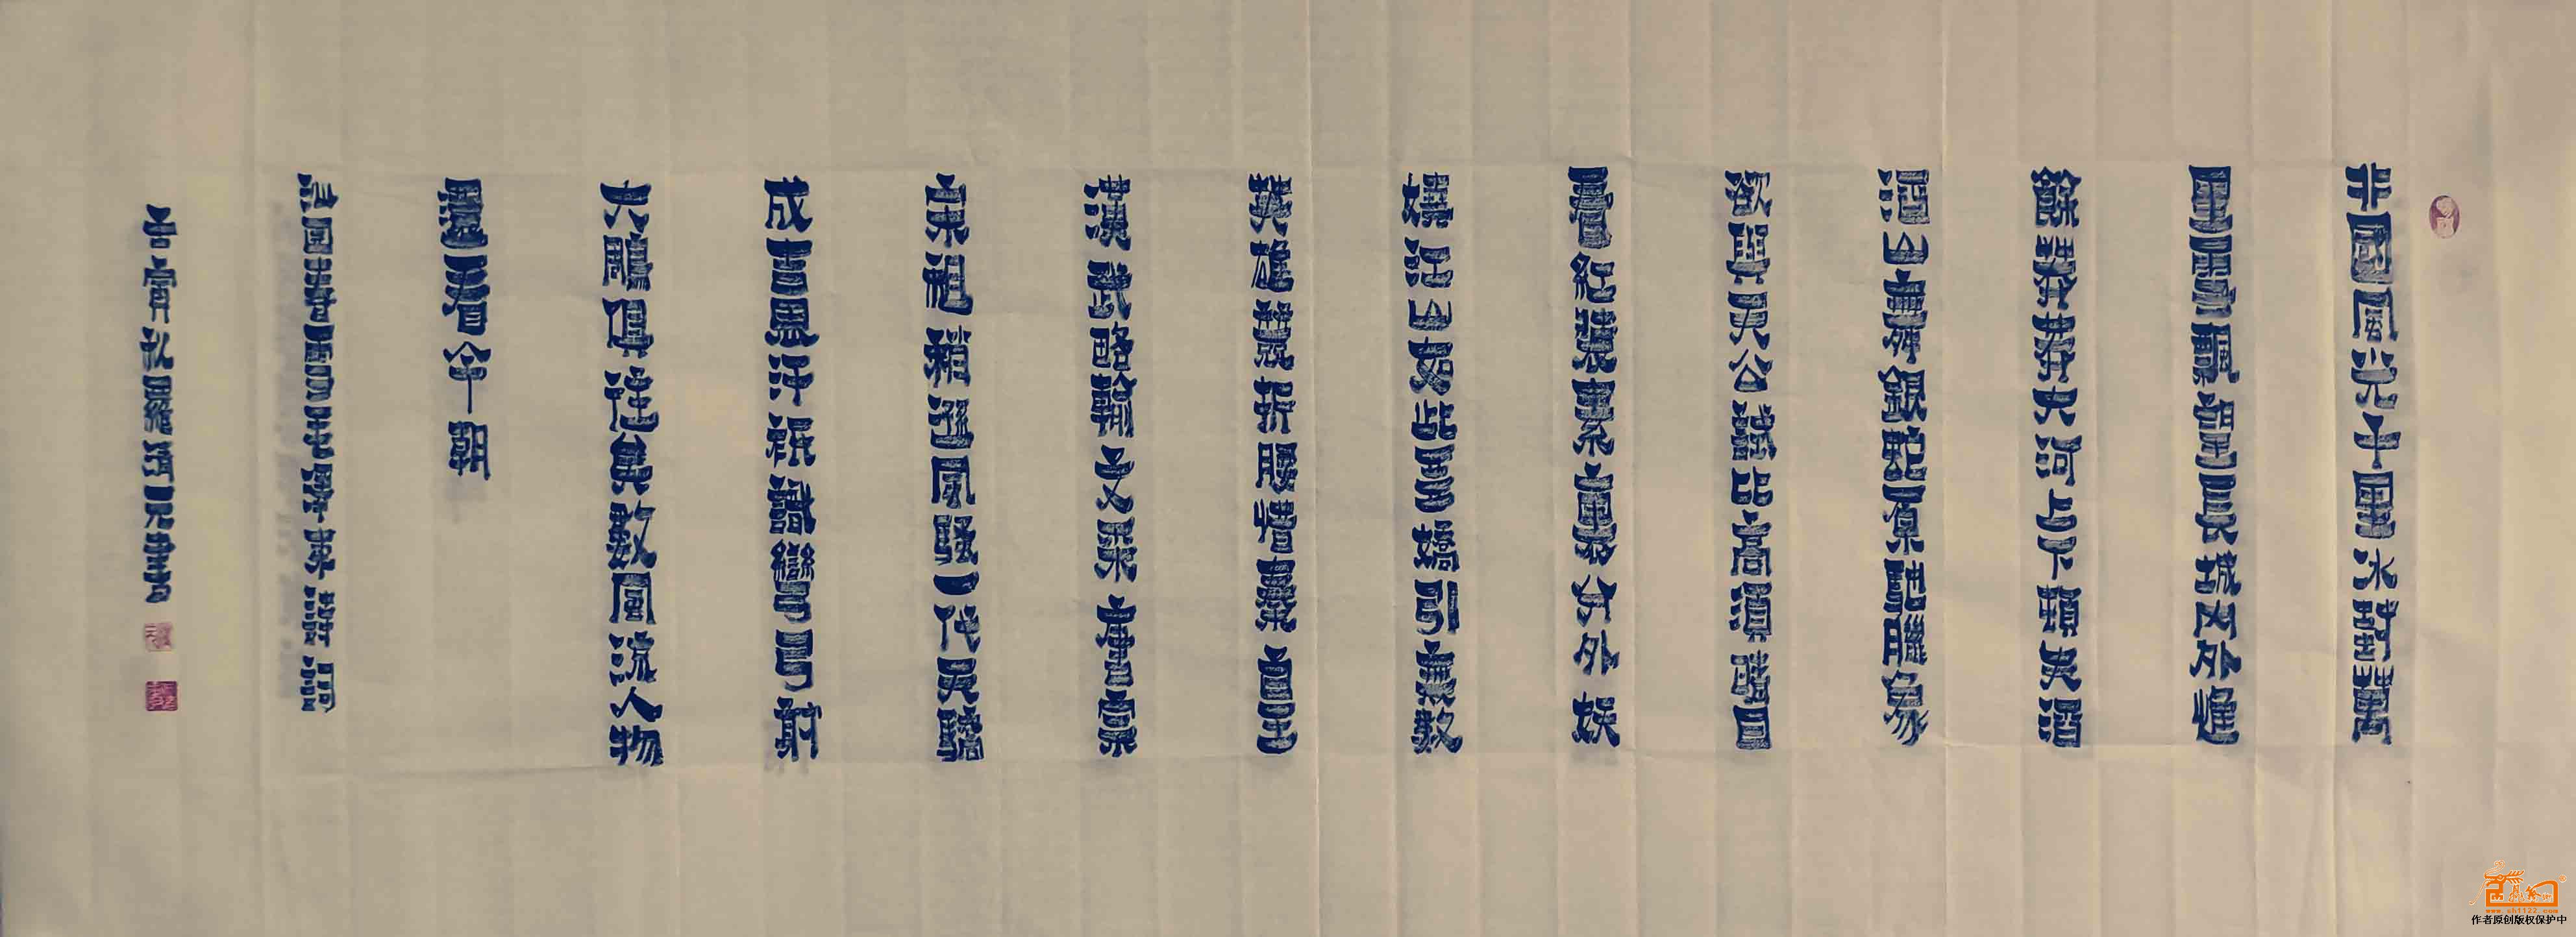 北國風光千里冰封萬
里雪飄望長城內外惟
餘莽莽大河上下頓失滔
滔山舞銀蛇原馳臘象
欲與天公試比高須晴日
看紅裝素裹分外妖
嬈江山如此多嬌引無數
英雄競折腰惜秦皇
漢武略輸文采唐宗
宋祖稍遜風騷一代天驕
成吉思汗祇識彎弓射
大雕俱往矣數風流人物
還看今朝
沁園春雪毛澤東詩詞
羅清元書
www.sh1122.com
作者原创版权保护中